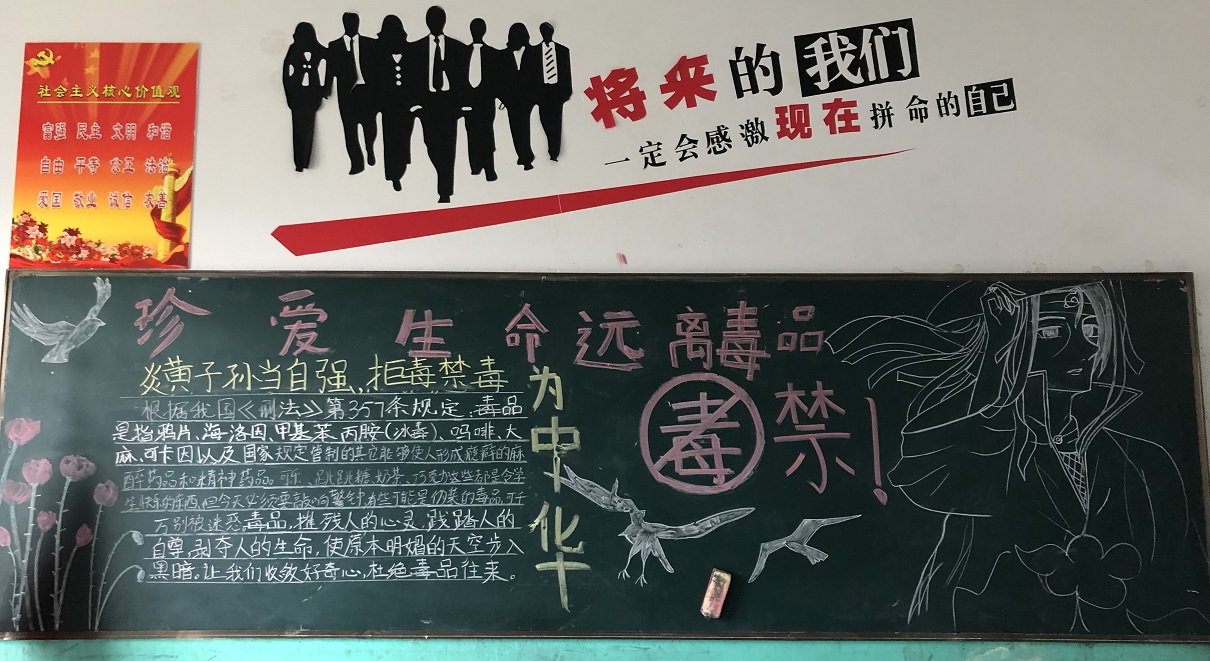 社会主义核心价值观
富强 民主 文明 和谐
自由 平等 公正 法治
爱国 敬业 诚信 友善
将来的我们
一定会感激现在拼命的自己
珍爱生命远离毒品
炎黄子孙当自强、拒毒禁毒
根据我国《刑法》第357条规定,毒品
是指鸦片、海洛因、甲基苯丙胺(冰毒)、吗啡、大
麻、可卡因以及国家规定管制的其它能够使人形成瘾癖的麻
醉药品和精神药品。可乐、跳跳糖、奶茶、巧克力这些都是令学
生快乐的东西,但今天必须要敲响警钟,有些可能是伪装的毒品,千
万别被迷惑毒品,摧残人的心灵,践踏人的
自尊,剥夺人的生命,使原本明媚的天空步入
黑暗,让我们收敛好奇心,杜绝毒品往来。
为中华
毒
禁!